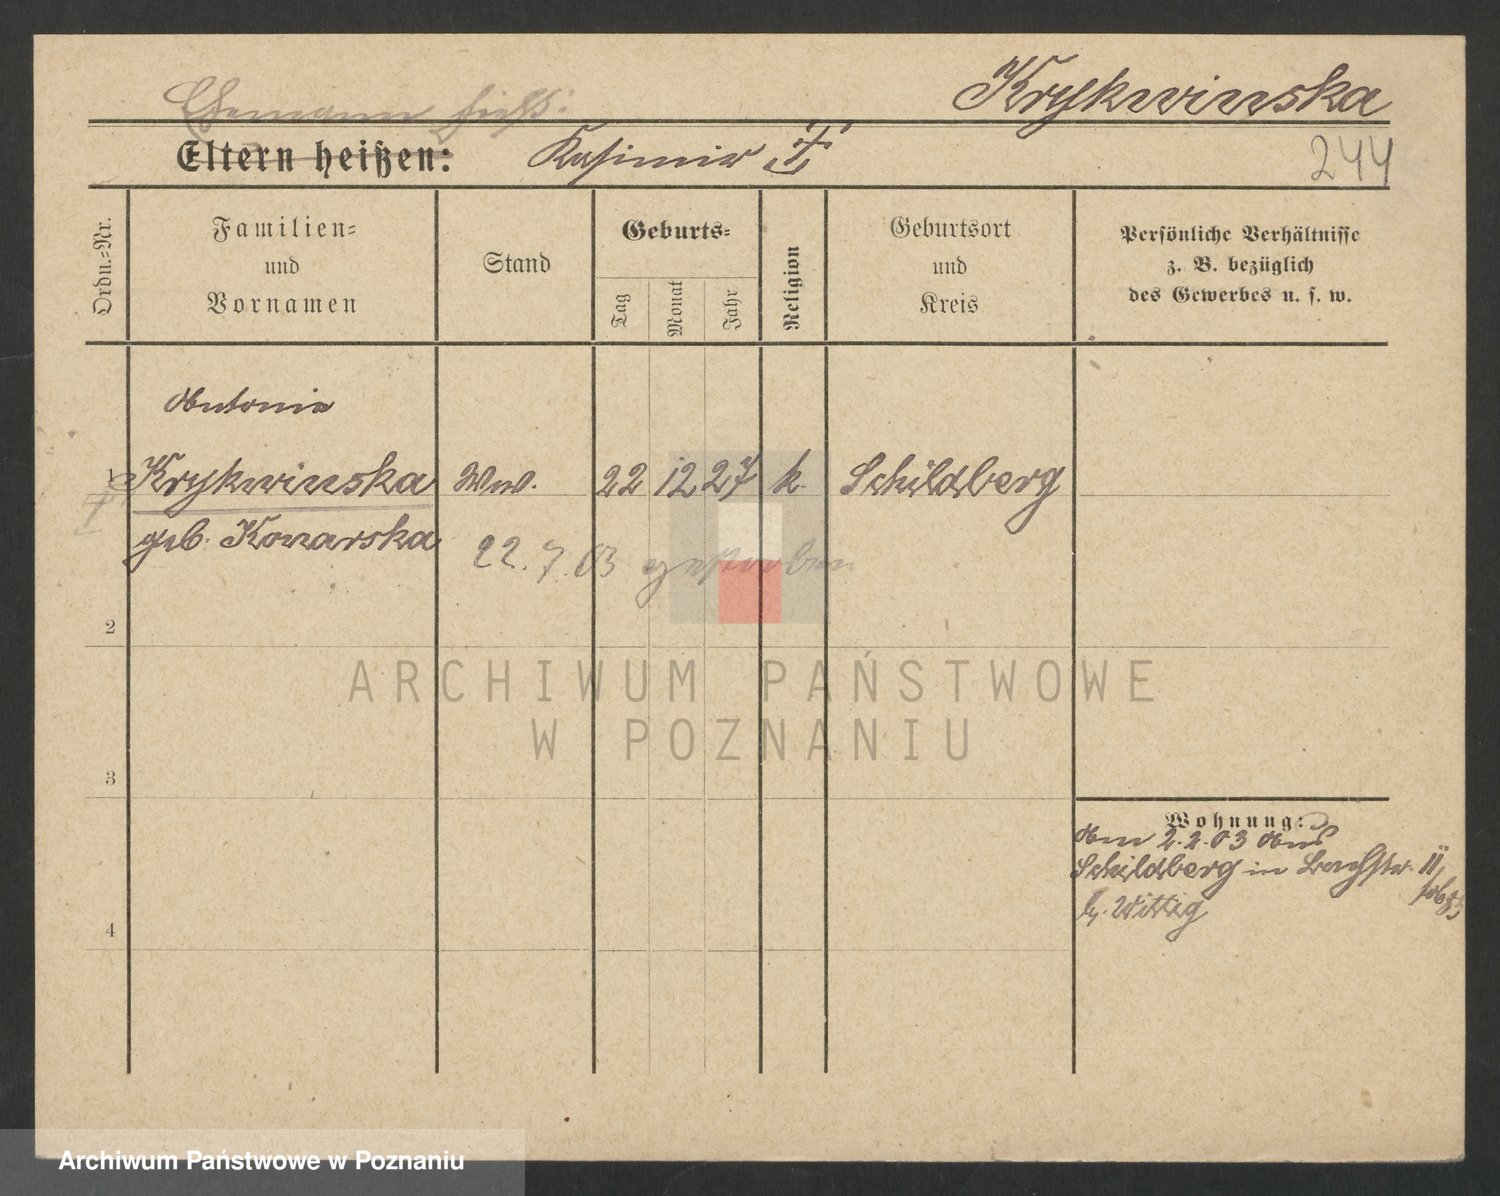 Krykwinska
Ehemann hieß:
Eltern heißen: Kasimir †
244
Ordn.-Nr.
Familien-
und
Vornamen
Stand
Geburts-
Tag
Monat
Jahr
Religion
Geburtsort
und
Kreis
Persönliche Verhältnisse
z. B. bezüglich
des Gewerbes u. s. w.
Antonie
1 Krykwinska Ww. 22 12 27 k. Schildberg
†
geb. Kovarska
22.7.03 gestorben
2
3
4
Wohnung:
Am 2.2.03 Aus
Schildberg in Bachstr. 11,
b. Wittig
ARCHIWUM PAŃSTWOWE
W POZNANIU
Archiwum Państwowe w Poznaniu